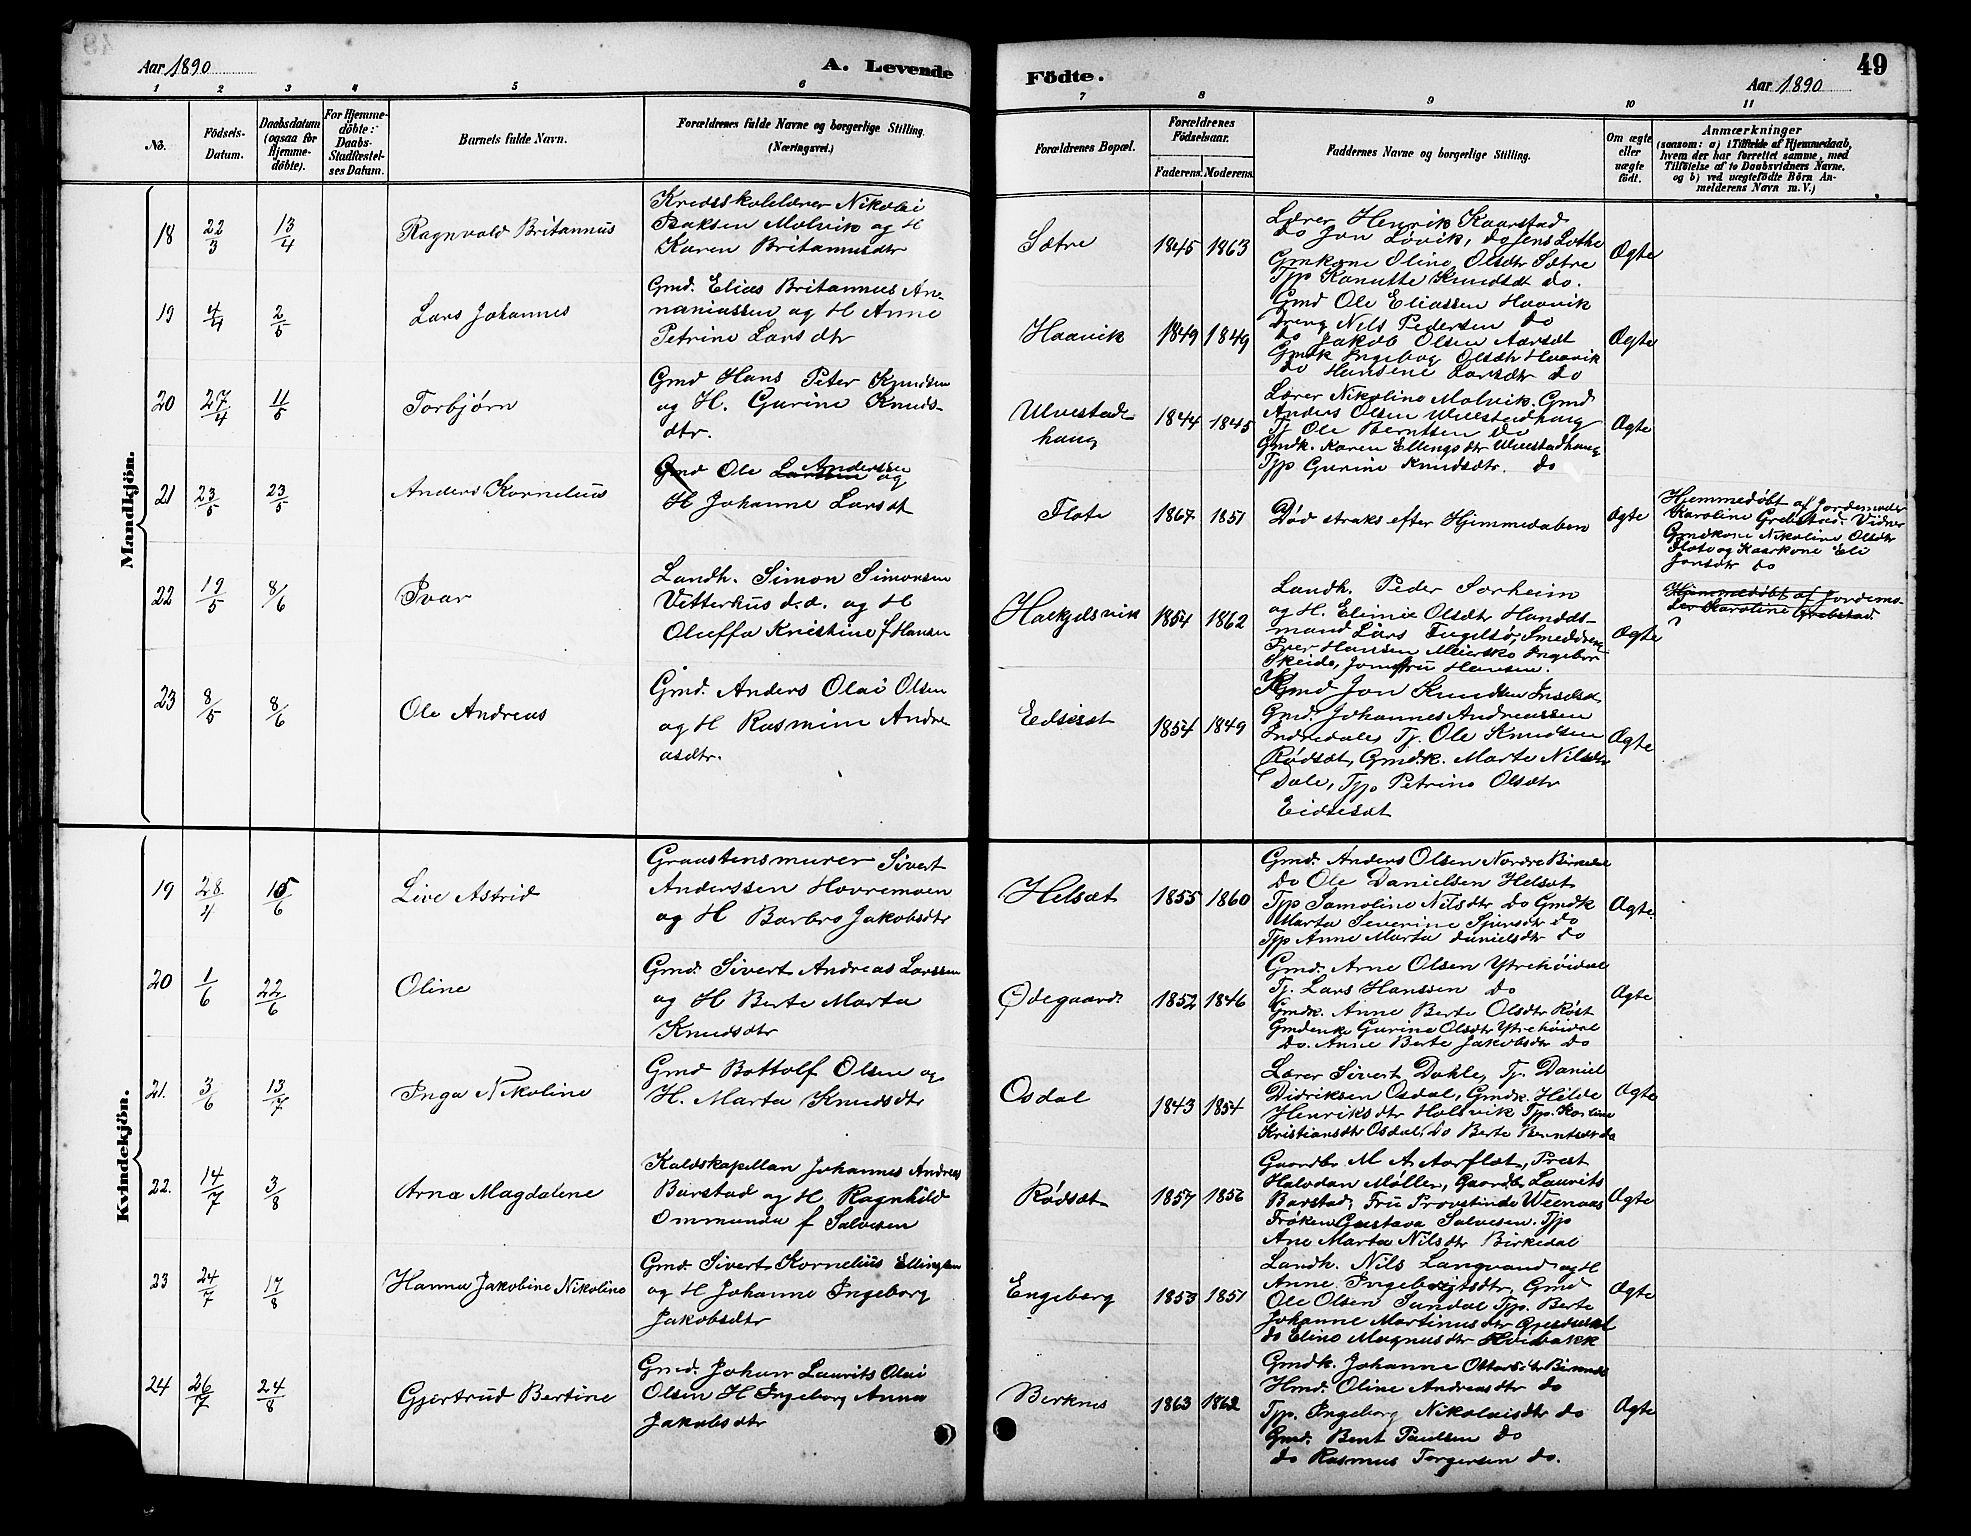 49
Aar 1890
A. Levende
Födte.
Aar 1890
1 2 3 4 5 6
7 8 9 10 11
No.
Födsels-
Datum.
Daabsdatum
(ogsaa for
Hjemme-
döbte).
For Hjemme-
döbte:
Daabs-
Stadfæstel-
ses Datum.
Barnets fulde Navn.
Forældrenes fulde Navne og borgerlige Stilling.
(Næringsvei.)
Forældrenes Bopæl.
Forældrenes
Födselsaar.
Faderens. Moderens.
Faddernes Navne og borgerlige Stilling.
Om ægte
eller
uægte
födt.
Anmærkninger
(saasom: a) i Tilfælde af Hjemmedaab,
hvem der har forrettet samme, med
Tilföielse af to Daabsvidners Navne.
og b) ved uægtefödte Börn An-
melderens Navn m. V.)
Mandkjön.
18 22/3 13/4 Ragnvald Britannus
Kredsskolelærer Nikolai
Isaksen Molvik og H
Karen Britanusdtr
Sætre 1845 1863
Lærer Henrik Kaarstad
do Jon Løvik, do Jens Lothe
Gmkone Oline Olsdtr Sætre
Tjp Kanutte Knudsdt do.
Ægte
19 4/4 2/5 Lars Johannes
Gmd. Elias Britannus An-
naniassen og H Anne
Petrine Larsdtr
Haavik 1849 1849
Gmd Ole Eliassen Haavik
Dreng Nils Pedersen do
do Jakob Olsen Aarset
Gmdk Ingebog Olsdtr Haavik
do Hansine Larsdtr do
Ægte
20 27/4 11/5 Torbjørn
Gmd Hans Peter Knudsen
og H. Gurine Knuds-
dtr.
Ulvestad-
haug 1844 1845
Lærer Nikoline Molvik. Gmd
Anders Olsen Ulvestadhaug
Tj Ole Berntsen do
Gmdk. Karen Ellingsdtr Ulvestadhaug
Tjp Gurine Knudsdtr. do
Ægte
21 23/5 23/5 Anders Kornelius
Gmd Ole Larssen Anderssen og
H Johanne Larsdt
Flote 1867 1851
Død straks efter Hjemmedaben
Ægte
Hjemmedøbt af Jordemoder
Karoline Grebstad. Vidner
Gmdkone Nikoline Olsdtr
Flote og Kaarkone Eli
Jonsdtr do
22 19/5 8/6 Ivar
Landh. Simon Simonsen
Vetterhus d.d. og H
Oluffa Kristine f Hansen
Hækjelsvik 1854 1862
Landh. Peder Sorheim
og H. Elinie Olsdtr Handels-
mand Lars Fugelsø, Smeddreng
Iver Hansen Meiersko Ingebor
Skeide, Jomfru Hansen.
Ægte
Hjemmedøbt af Jordemo-
der Karoline Grebstad.
?
23 8/5 8/6 Ole Andreas
Gmd. Anders Olai Olsen
og H Rasmine Andre
asdtr.
Edsisæt 1854 1849
Gmd Jon Knudsen Inselset
Gmd. Johannes Andreassen
Indredales Tj. Ole Knudsen
Rødsæt, Gmdk. Marte Nilsdtr
Dale, Tjp Petrine Olsdtr
Eidsisæt
Ægte
Kvindekjön.
19 28/4 15/6 Live Astrid
Graastensmurer Sivert
Anderssen Hovremoen
og H Barbro Jakobsdtr
Helsæt 1855 1860
Gmd. Anders Olsen Nordre Birkedal
do Ole Danielsen Helsæt
Tjp Samoline Nilsdtr do Gmdk
Marta Severine Sjursdtr do
Tjp Anne Marta Danielsdtr do
Ægte.
20 1/6 22/6 Oline
Gmd. Sivert Andreas Larssen
og H Berte Marta
Knudsdtr
Ødegaard 1852 1846
Gmd. Arne Olsen Ytrehøidal
Tj. Lars Hanssen do
Gmdk. Anne Berte Olsdtr Røst
Gmdenke Gurine Olsdtr Ytrehøidal
do. Anne Berte Jakobsdtr do
Ægte
21. 3/6 13/7 Inga Nikoline
Gmd Bottolf Olsen og
H. Marta Knudsdtr
Osdal 1843 1854
Lærer Sivert Dahle, Tj. Daniel
Didriksen Osdal, Gmdk. Helde
Henriksdtr Holsvik Tjp. Karline
Kristiansdtr Osdal, do Berte Berntsdt do
Ægte
22. 14/7 3/8 Arna Magdalene
Kaldskapellan Johannes Andreas
Barstad og H Ragnhild
Ommunda f Salvesen
Rødsæt 1857 1856
Gaardbr M A Aarflot, Præst
Halvdan Møller, Gaardbr Lauvits
Barstad, Fru Provstinde Weenaas
Frøken Gustava Salvesen. Tjp
Ane Marta Nilsdtr Birkedal
Ægte
23 24/7 17/8 Hanna Jakobine Nikoline
Gmd Sivert Kornelius Ellingsen
og H Johanne Ingeborg
Jakobsdtr
Engeberg 1853 1851
Landh. Nils Langvand og H
Anne Ingebrigtsdtr, Gmd
Ole Olsen Sundal Tjp. Berte
Johanne Martinusdtr
do Eline Magnusdtr Hovibakk
Ægte
24 26/7 24/8 Gjertrud Bertine
Gmd. Johan Lauvits Olai
Olsen H Ingeborg Anna
Jakobsdtr
Berknes 1863 1862
Gmdk. Johanne
Hmd. Oline Andreasdtr do
Tjp. Ingeborg Nikolaisdtr do
Gmd. Bent Paulsen do
do Rasmus Torgersen do.
Ægte